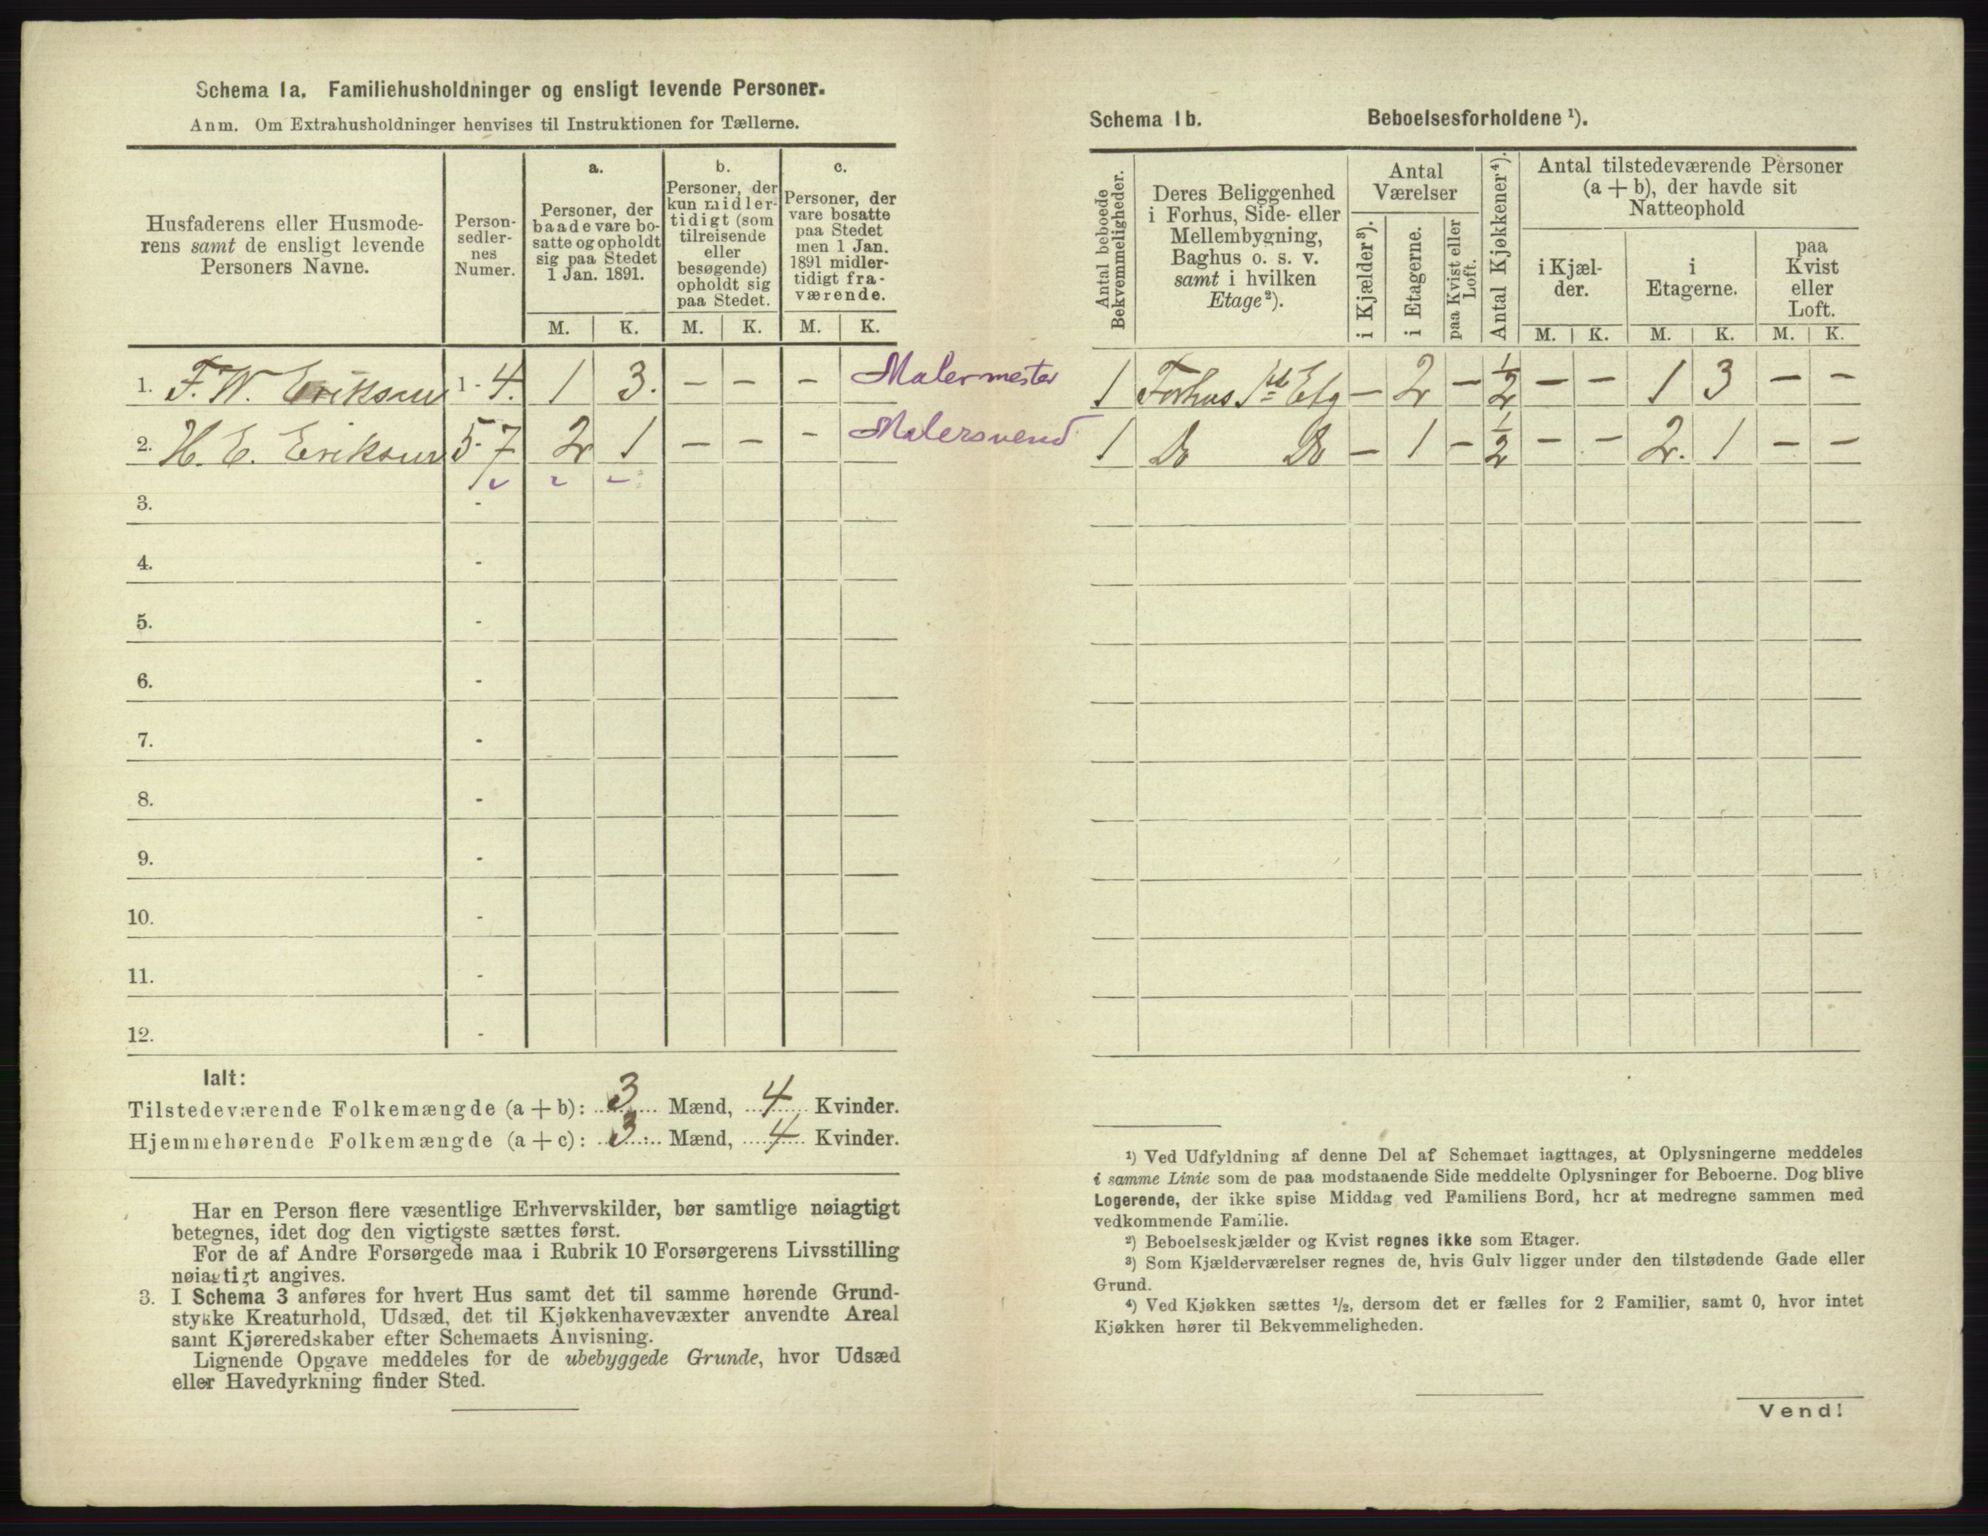 Schema 1a. Familiehusholdninger og ensligt levende Personer.
Anm. Om Extrahusholdninger henvises til Instruktionen for Tællerne.
Husfaderens eller Husmode-
rens samt de ensligt levende
Personers Navne.
Person-
sedler-
nes
Numer.
a.
Personer, der
baade vare bo-
satte og opholdt
sig paa Stedet
1 Jan. 1891.
b.
Personer, der
kun midler-
tidigt (som
tilreisende
eller
besøgende)
opholdt sig
paa Stedet.
c.
Personer, der
vare bosatte
paa Stedet
men 1 Jan.
1891 midler-
tidigt fra-
værende.
M. K. M. K. M. K.
1. F. W. Eriksen 1 - 4. 1 3. - - - Malermester
2. H. E. Eriksen 5 - 7 2 1 - - - Malersvend
3. -
4. -
5. -
6. -
7. -
8. -
9. -
10. -
11. -
12. -
Ialt:
Tilstedeværende Folkemængde (a + b): 3 Mænd, 4 Kvinder.
Hjemmehørende Folkemængde (a + c): 3 Mænd, 4 Kvinder.
Har en Person flere væsentlige Erhvervskilder, bør samtlige nøiagtigt
betegnes, idet dog den vigtigste sættes først.
For de af Andre Forsørgede maa i Rubrik 10 Forsørgerens Livsstilling
nøiagtigt angives.
3. I Schema 3 anføres for hvert Hus samt det til samme hørende Grund-
stykke Kreaturhold, Udsæd, det til Kjøkkenhavevæxter anvendte Areal
samt Kjøreredskaber efter Schemaets Anvisning.
Lignende Opgave meddeles for de ubebyggede Grunde, hvor Udsæd
eller Havedyrkning finder Sted.
Schema 1b. Beboelsesforholdene ¹).
Antal beboede
Bekvemmeligheder.
Deres Beliggenhed
i Forhus, Side- eller
Mellembygning,
Baghus o. s. v.
samt i hvilken
Etage²).
Antal
Værelser
i Kjælder³).
i Etagerne.
paa Kvist eller
Loft.
Antal Kjøkkener⁴).
Antal tilstedeværende Personer
(a + b), der havde sit
Natteophold
i Kjæl-
der.
i
Etagerne.
paa
Kvist
eller
Loft.
M. K. M. K. M. K.
1 Forhus 1ste Etg - 2 - 1/2 - - 1 3 - -
1 Do Do - 1 - 1/2 - - 2. 1 - -
¹) Ved Udfyldning af denne Del af Schemaet iagttages, at Oplysningerne meddeles
i samme Linie som de paa modstaaende Side meddelte Oplysninger for Beboerne. Dog blive
Logerende, der ikke spise Middag ved Familiens Bord, her at medregne sammen med
vedkommende Familie.
²) Beboelseskjælder og Kvist regnes ikke som Etager.
³) Som Kjælderværelser regnes de, hvis Gulv ligger under den tilstødende Gade eller
Grund.
⁴) Ved Kjøkken sættes ½, dersom det er fælles for 2 Familier, samt 0, hvor intet
Kjøkken hører til Bekvemmeligheden.
Vend!